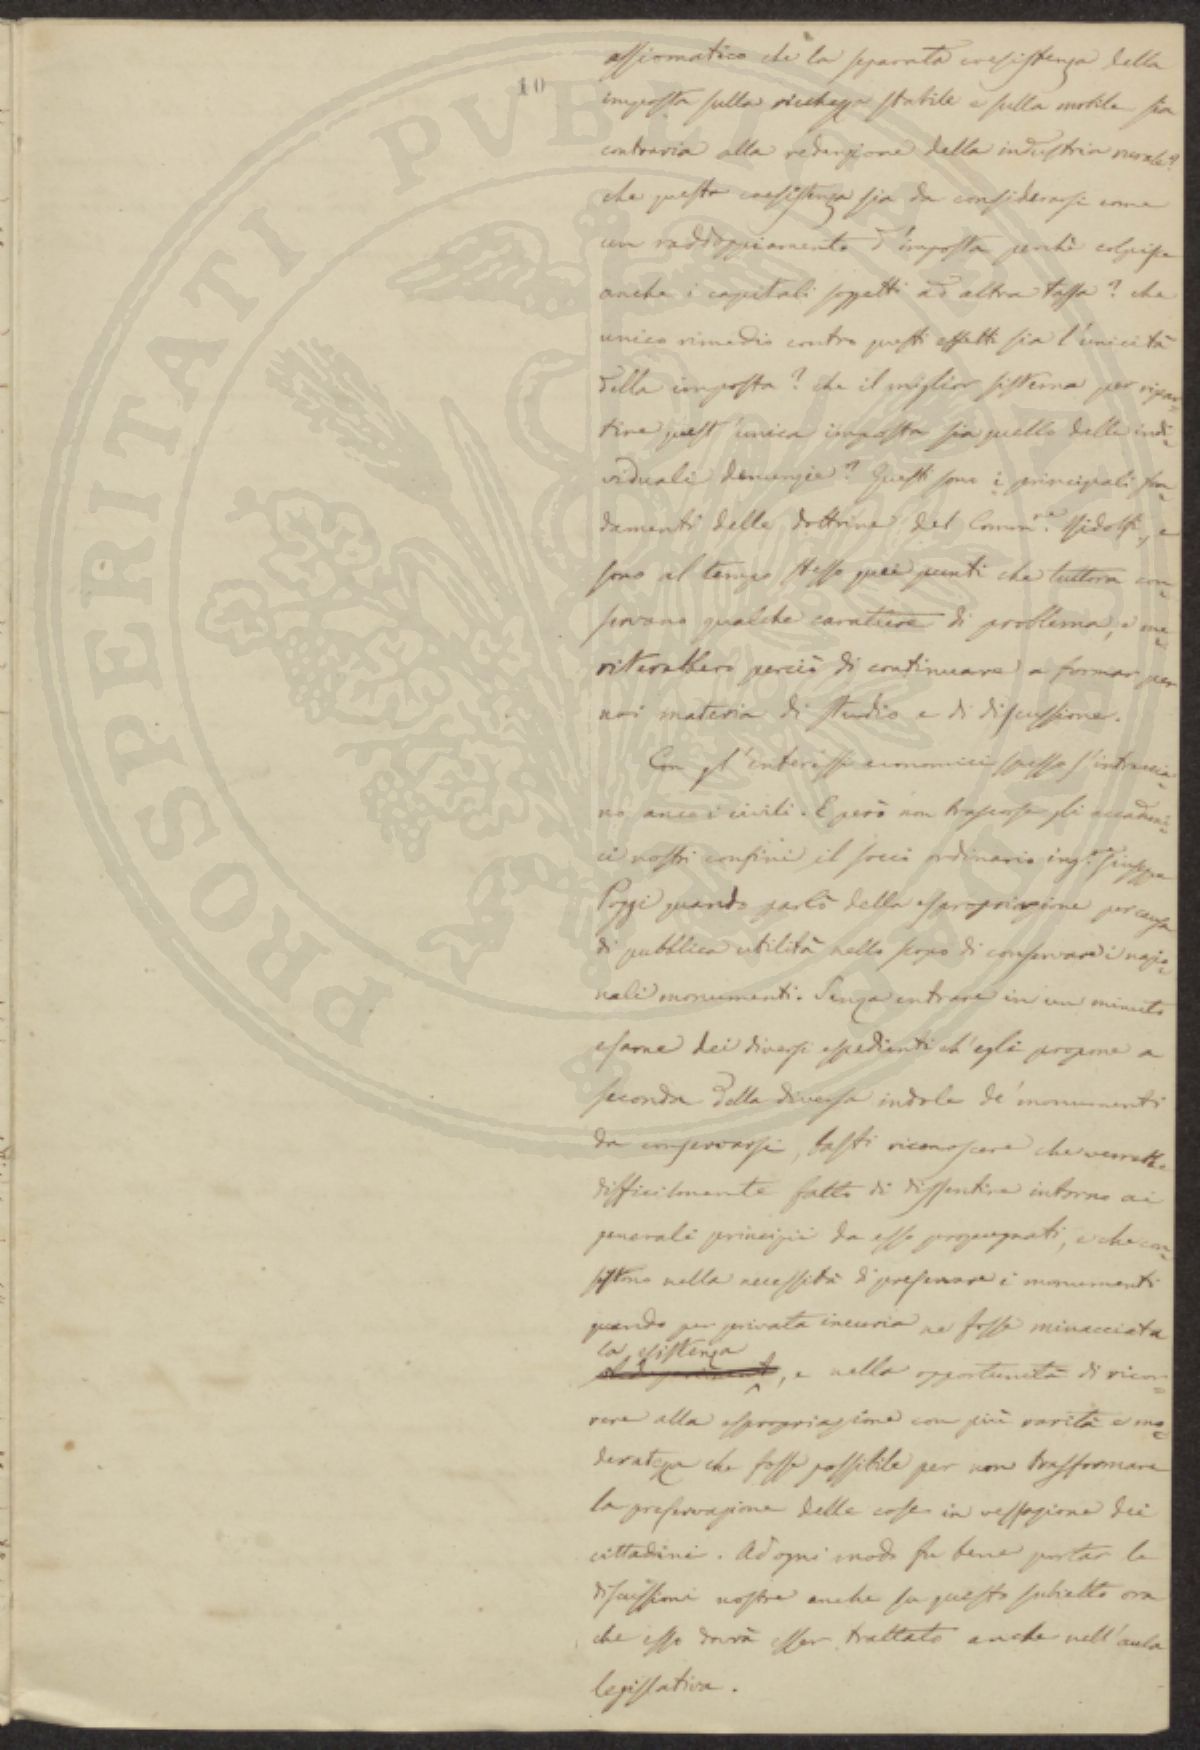 10
assiomatico che la separata coesistenza della
imposta sulla ricchezza stabile e sulla mobile sia
contraria alla redenzione della industria rurale?
che questa coesistenza sia da considerarsi come
un raddoppiamento d'imposta perchè colpisce
anche i capitali soggetti ad altra tassa? che
unico rimedio contro questi effetti sia l'unicità
della imposta? che il miglior sistema per ripar-
tire quest'unica imposta sia quello delle indi-
viduali denunzie? Questi sono i principali fon-
damenti delle dottrine del Comm.re Ridolfi, e
sono al tempo stesso quei punti che tuttora con-
servano qualche carattere di problema, e me-
riterebbero perciò di continuare a formar per
noi materia di studio e di discussione.
Con gl'interessi economici spesso s'intreccia-
no anco i civili. E però non trascorse gli accademi-
ci nostri confini il socio ordinario ing.re Giuseppe
Poggi quando parlò della espropriazione per causa
di pubblica utilità nello scopo di conservare i nazio-
nali monumenti. Senza entrare in un minuto
esame dei diversi espedienti ch'egli propone a
seconda della diversa indole de' monumenti
da conservarsi, basti riconoscere che verrebbe
difficilmente fatto di dissentire intorno ai
generali principii da esso propugnati, e che con-
sistono nella necessità di preservare i monumenti
quando per privata incuria ne fosse minacciata
la esistenza
, e nella opportunità di ricor-
rere alla espropriazione con più rarità e mo-
deratezza che fosse possibile per non trasformare
la preservazione delle cose in vessazione dei
cittadini. Ad ogni modo fu bene portar le
discussioni nostre anche su questo subietto ora
che esso dovrà esser trattato anche nell'aula
legislativa.
PROSPERITATI PVBLICAE